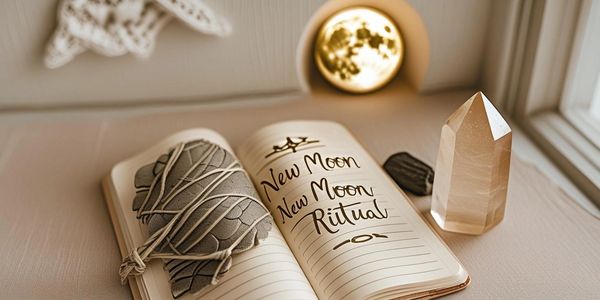 New Moon
New Moon
Ritual